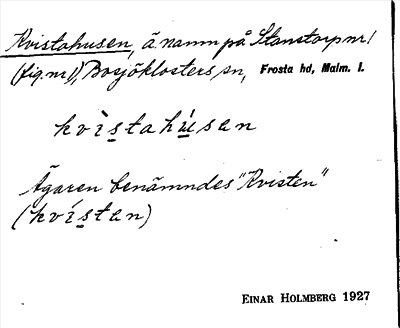 Kvistahusen, ä. namn på Stanstorp nr 1
(fig nr 1), Bosjöklosters sn, Frosta hd, Malm. l.
kvìstahúsan
Ägaren benämndes "Kvisten"
(kvístan)
EINAR HOLMBERG 1927